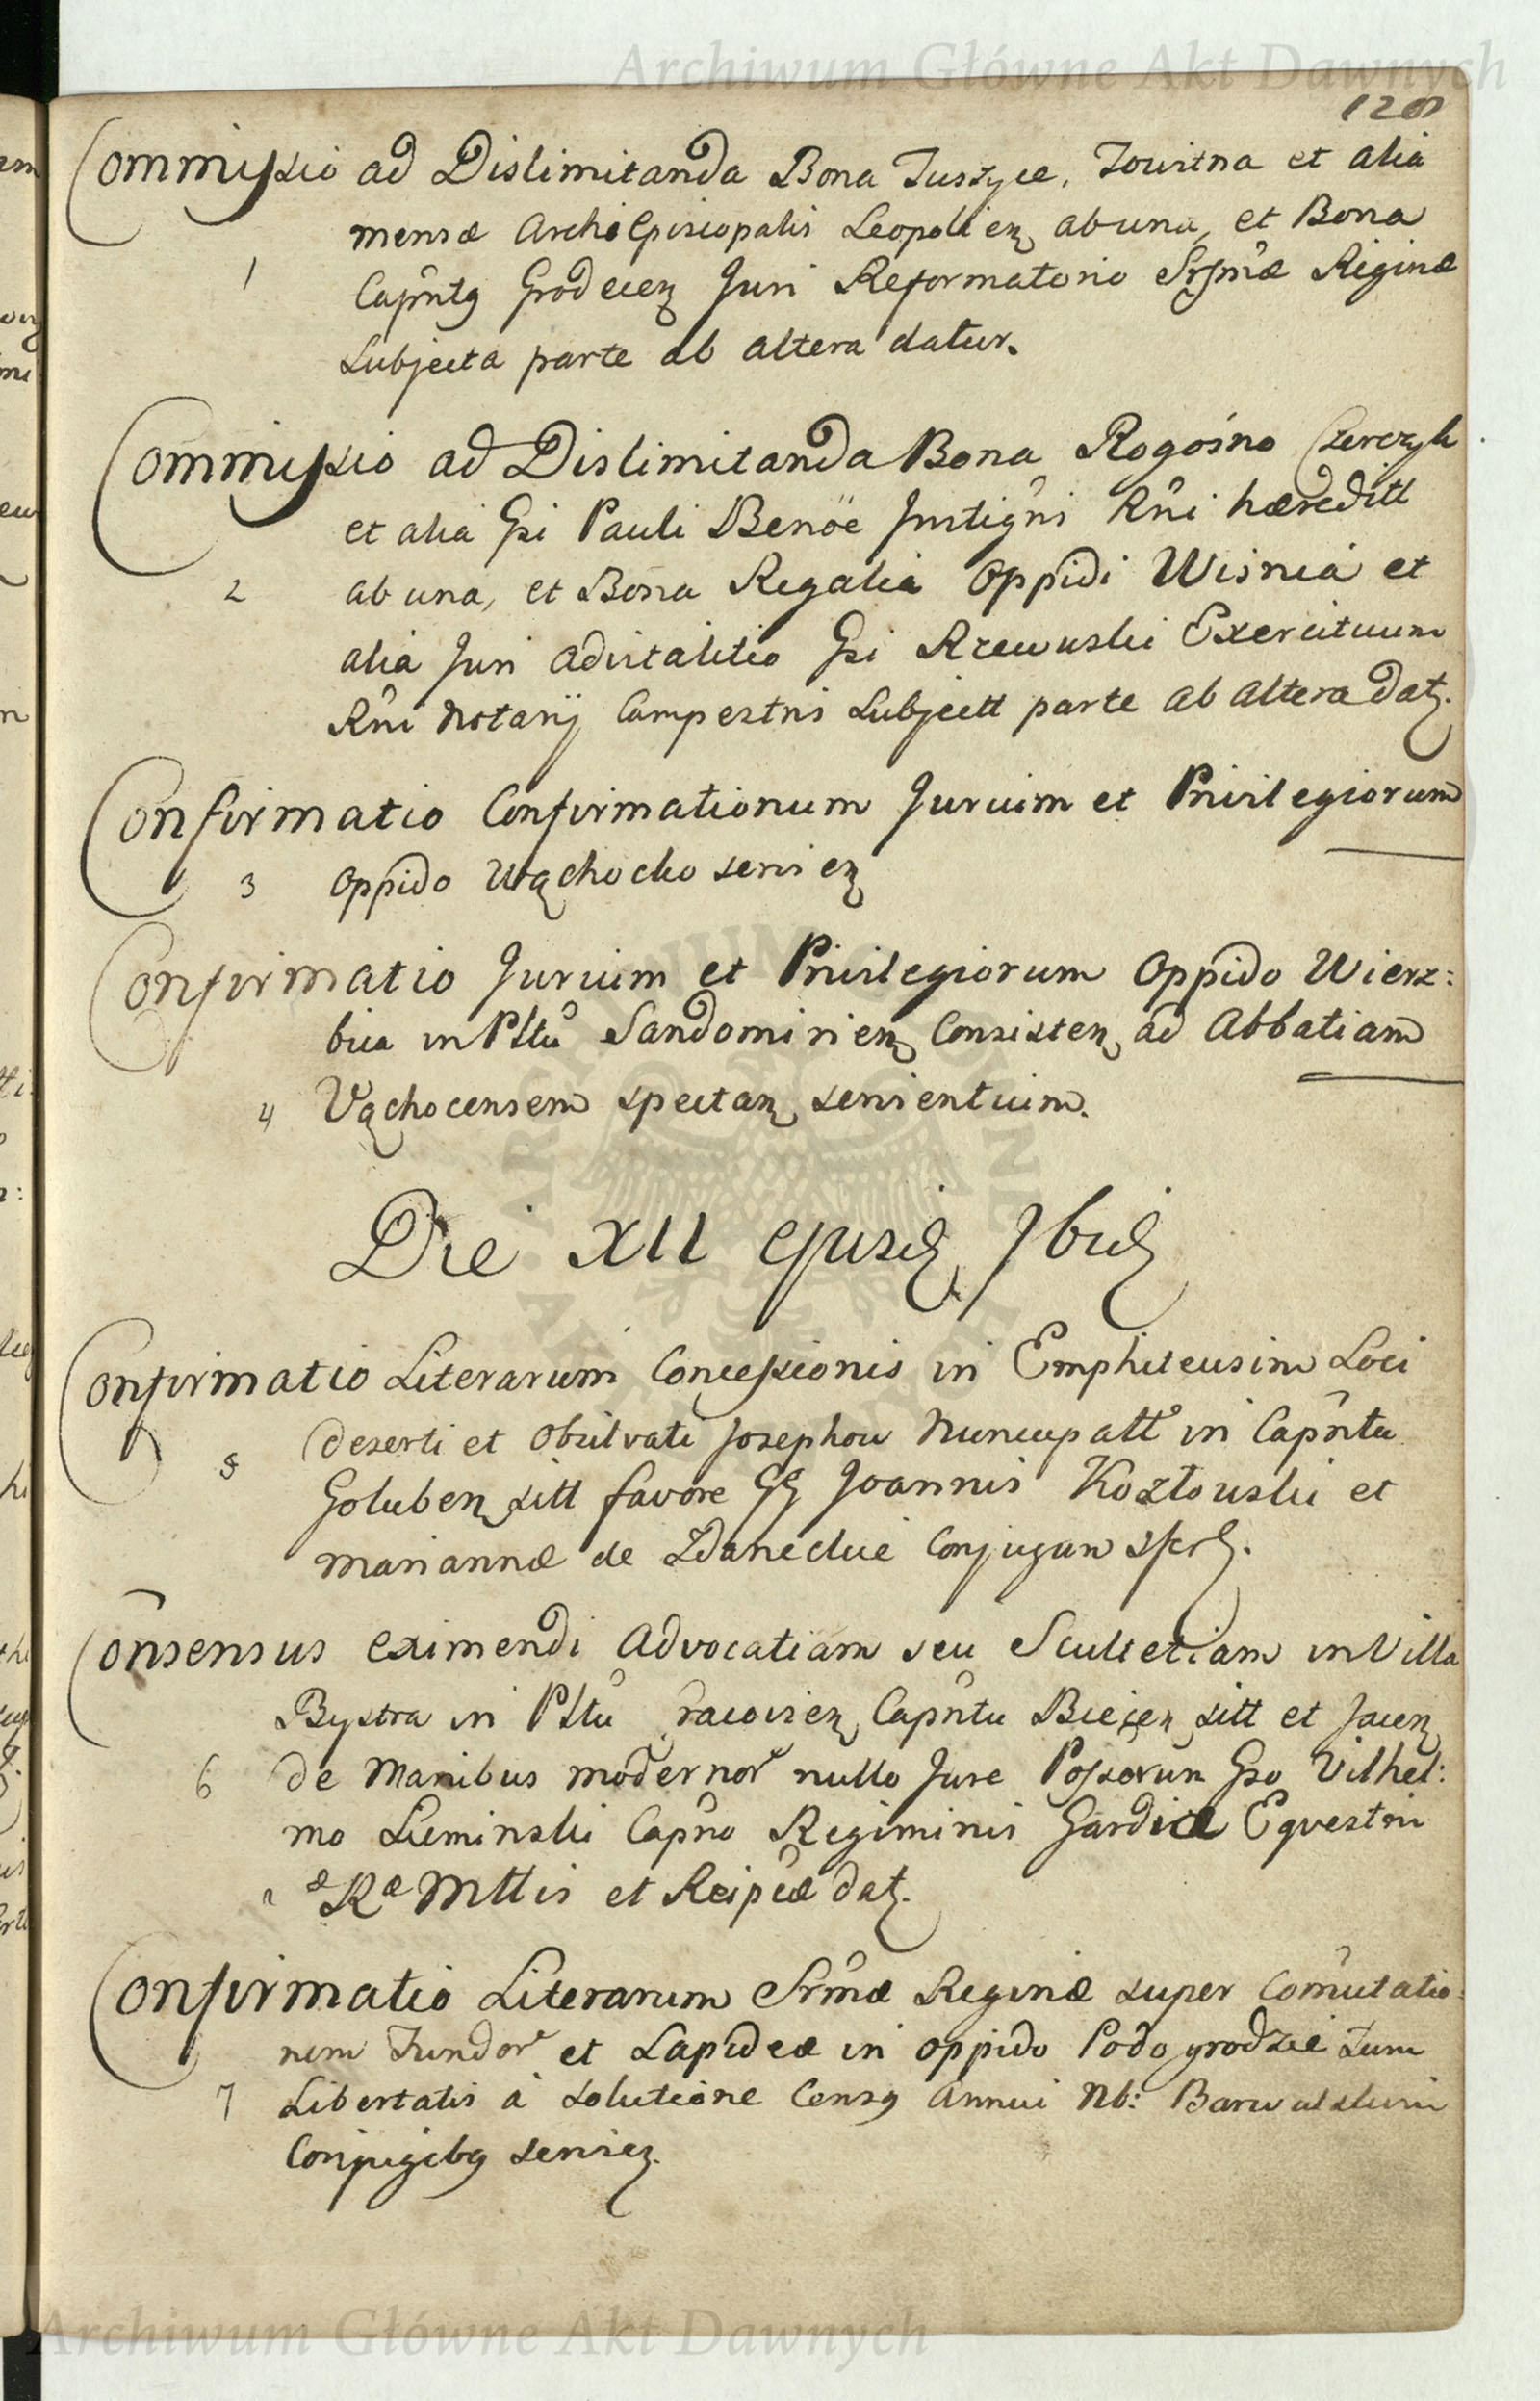 Archiwum Główne Akt Dawnych
128
Commissio ad Dislimitanda Bona Tuszyce, Zowitna et alia
mensæ Archiepiscopalis Leopolien ab una, et Bona
1 Capnts Grodecen Juri Reformatorio Srsmæ Reginæ
Subjecta parte ab altera datur.
Commissio ad Dislimitanda Bona Rogośno Czerczyk
et alia Gsi Pauli Benöe Instigni Rni hæreditt
2 ab una, et Bona Regalia Oppidi Wisnia et
alia Juri advitalitio Gsi Rzewuski Exercituum
Rni Notarij Campestris Subjectt parte ab altera dat.
Confirmatio Confirmationum Jurium et Privilegiorum
3 Oppido Wąchocko servien
Confirmatio Jurium et Privilegiorum Oppido Wierz:
bica in Pltu Sandomirien Consisten ad Abbatiam
4 Vąchocensem spectan servientium.
Die XII ejusd Ibid
Confirmatio Literarum Concessionis in Emphiteusim Loci
deserti et Obsilvati Josephow Nuncupatt in Capntu
5 Goluben sitt favore GG Joannis Kozłowski et
Mariannæ de Zdaneckie Conjugum
Consensus eximendi Advocatiam seu Scultetiam in Villa
Bystra in Pltu racovien Capntu Biecen sitt et Jacen
6 de Manibus modernor nullo Jure Possorum Gso Vilhel:
mo Sieminski Capno Regiminis Gardiæ Eqvestris
Ræ Mttis et Reipcæ dat.
Confirmatio Literarum Srmæ Reginæ super Comutatio:
nem Fundor et Lapideæ in oppido Podogrodzie tum
7 Libertatis à solutione Census annui Nb: Barwalskim
Conjugibus servien.
Archiwum Główne Akt Dawnych